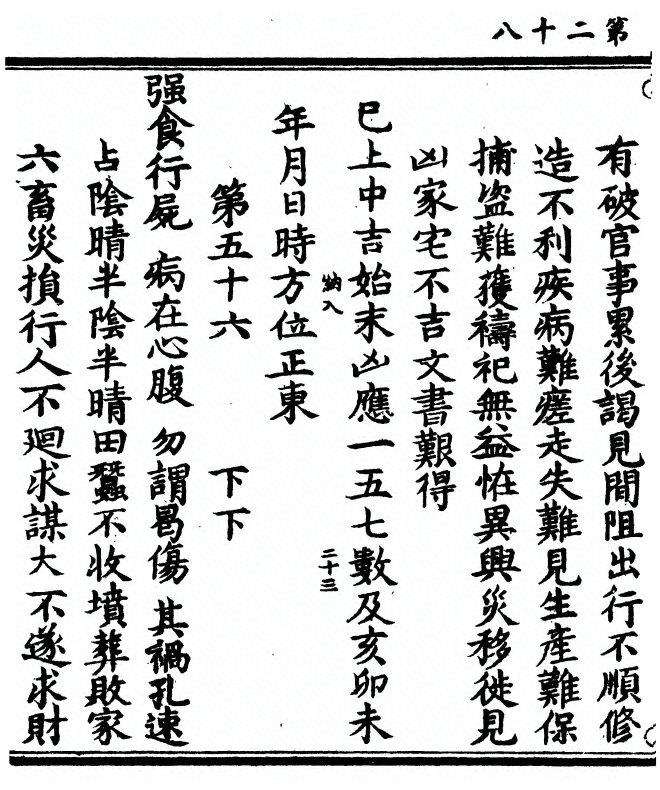 第二十八
有破官事累後謁見間阻出行不順修
造不利疾病難瘥走失難見生產難保
捕盜難獲禱祀無益恠異興災移徙見
凶家宅不吉文書艱得
巳上中吉始末凶應一五七數及亥卯未
納入
二十三
年月日時方位正東
第五十六 下下
强食行屍 病在心腹 勿謂曷傷 其禍孔速
占陰晴半陰半晴田蠶不收墳葬敗家
六畜災損行人不廻求謀大不遂求財